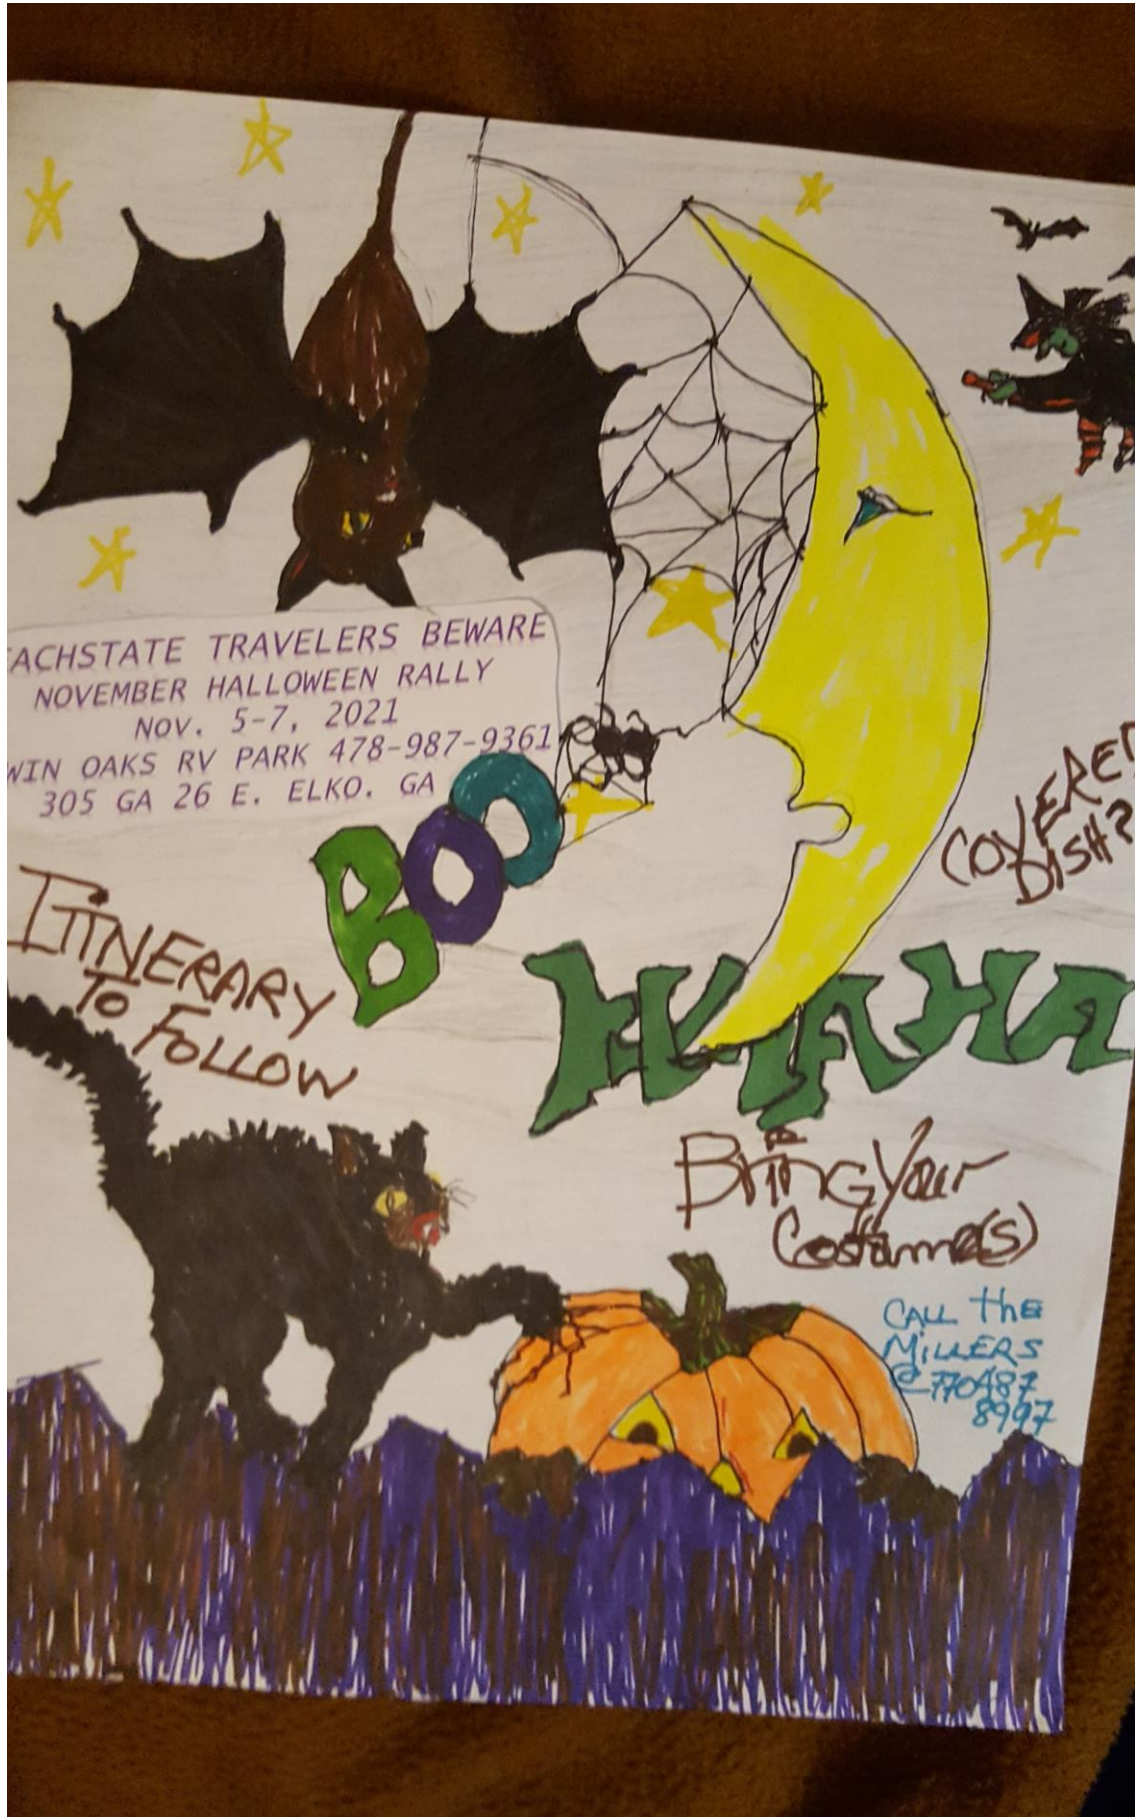 ACHSTATE TRAVELERS BEWARE
NOVEMBER HALLOWEEN RALLY
NOV. 5-7, 2021
WIN OAKS RV PARK 478-987-9361
305 GA 26 E. ELKO. GA
BOO
COVERED
DISH?
ITINERARY
TO FOLLOW
HAHA
Bring Your
Costume(s)
CALL thE
MILLERS
@ 770487
8997